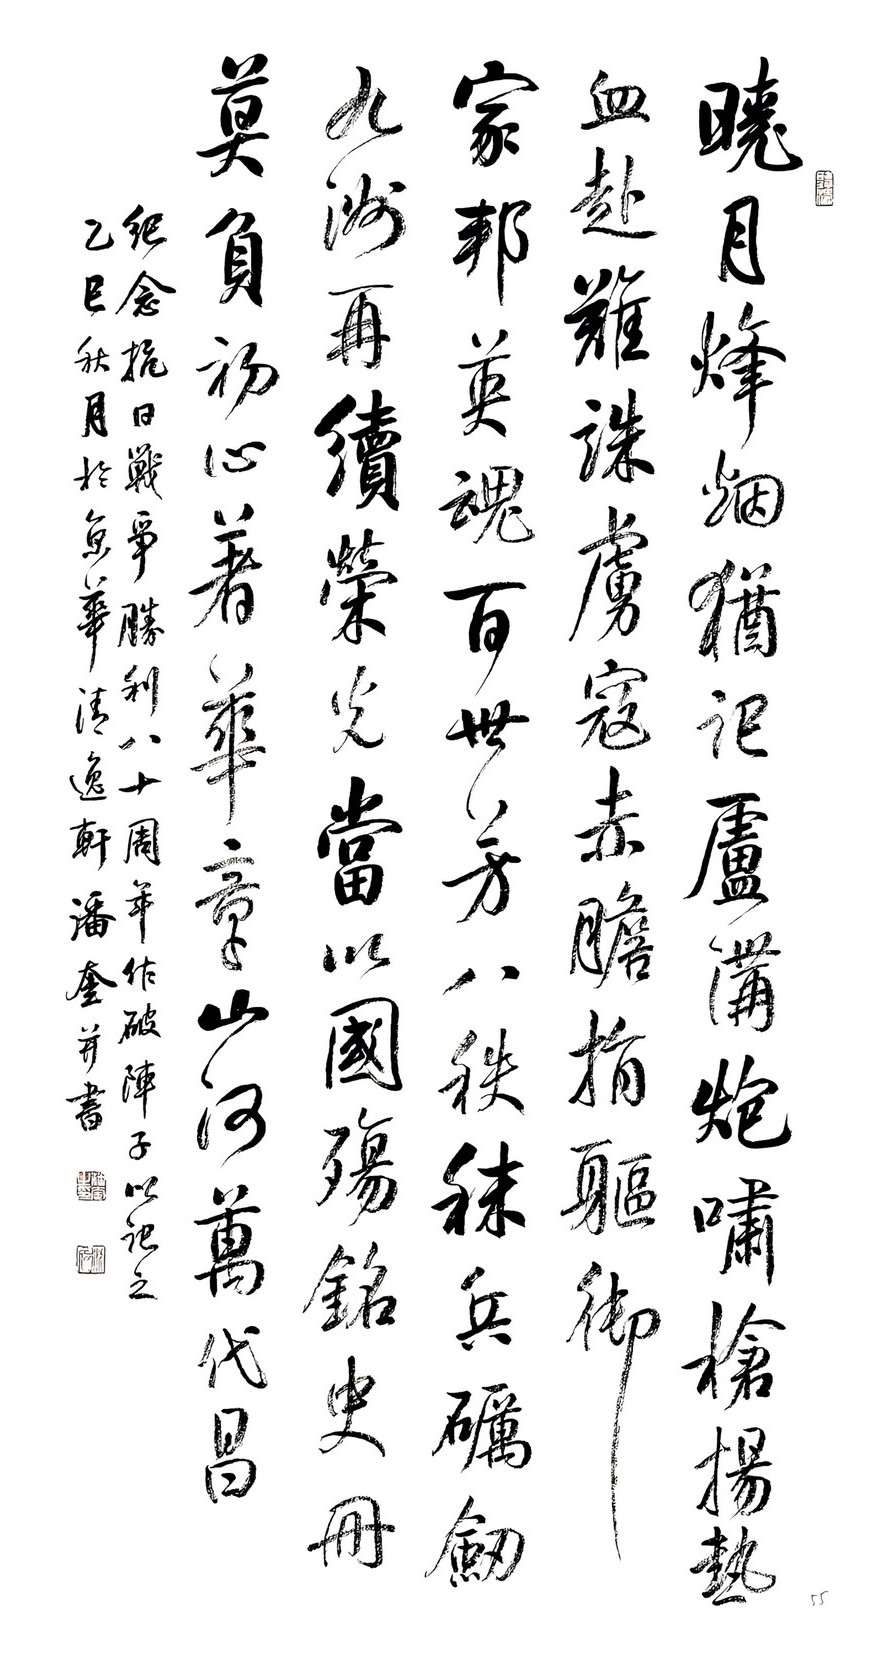 曉月烽烟猶記盧溝炮嘯槍揚熱
血赴難誅虜寇赤膽捐軀御
家邦英魂百世芳八秩秣兵礪劍
九洲再續榮光當以國殤銘史冊
莫負初心著華章山河萬代昌
紀念抗日戰爭勝利八十周年作破陣子以記之
乙巳秋月於京華清逸軒潘奎并書
55